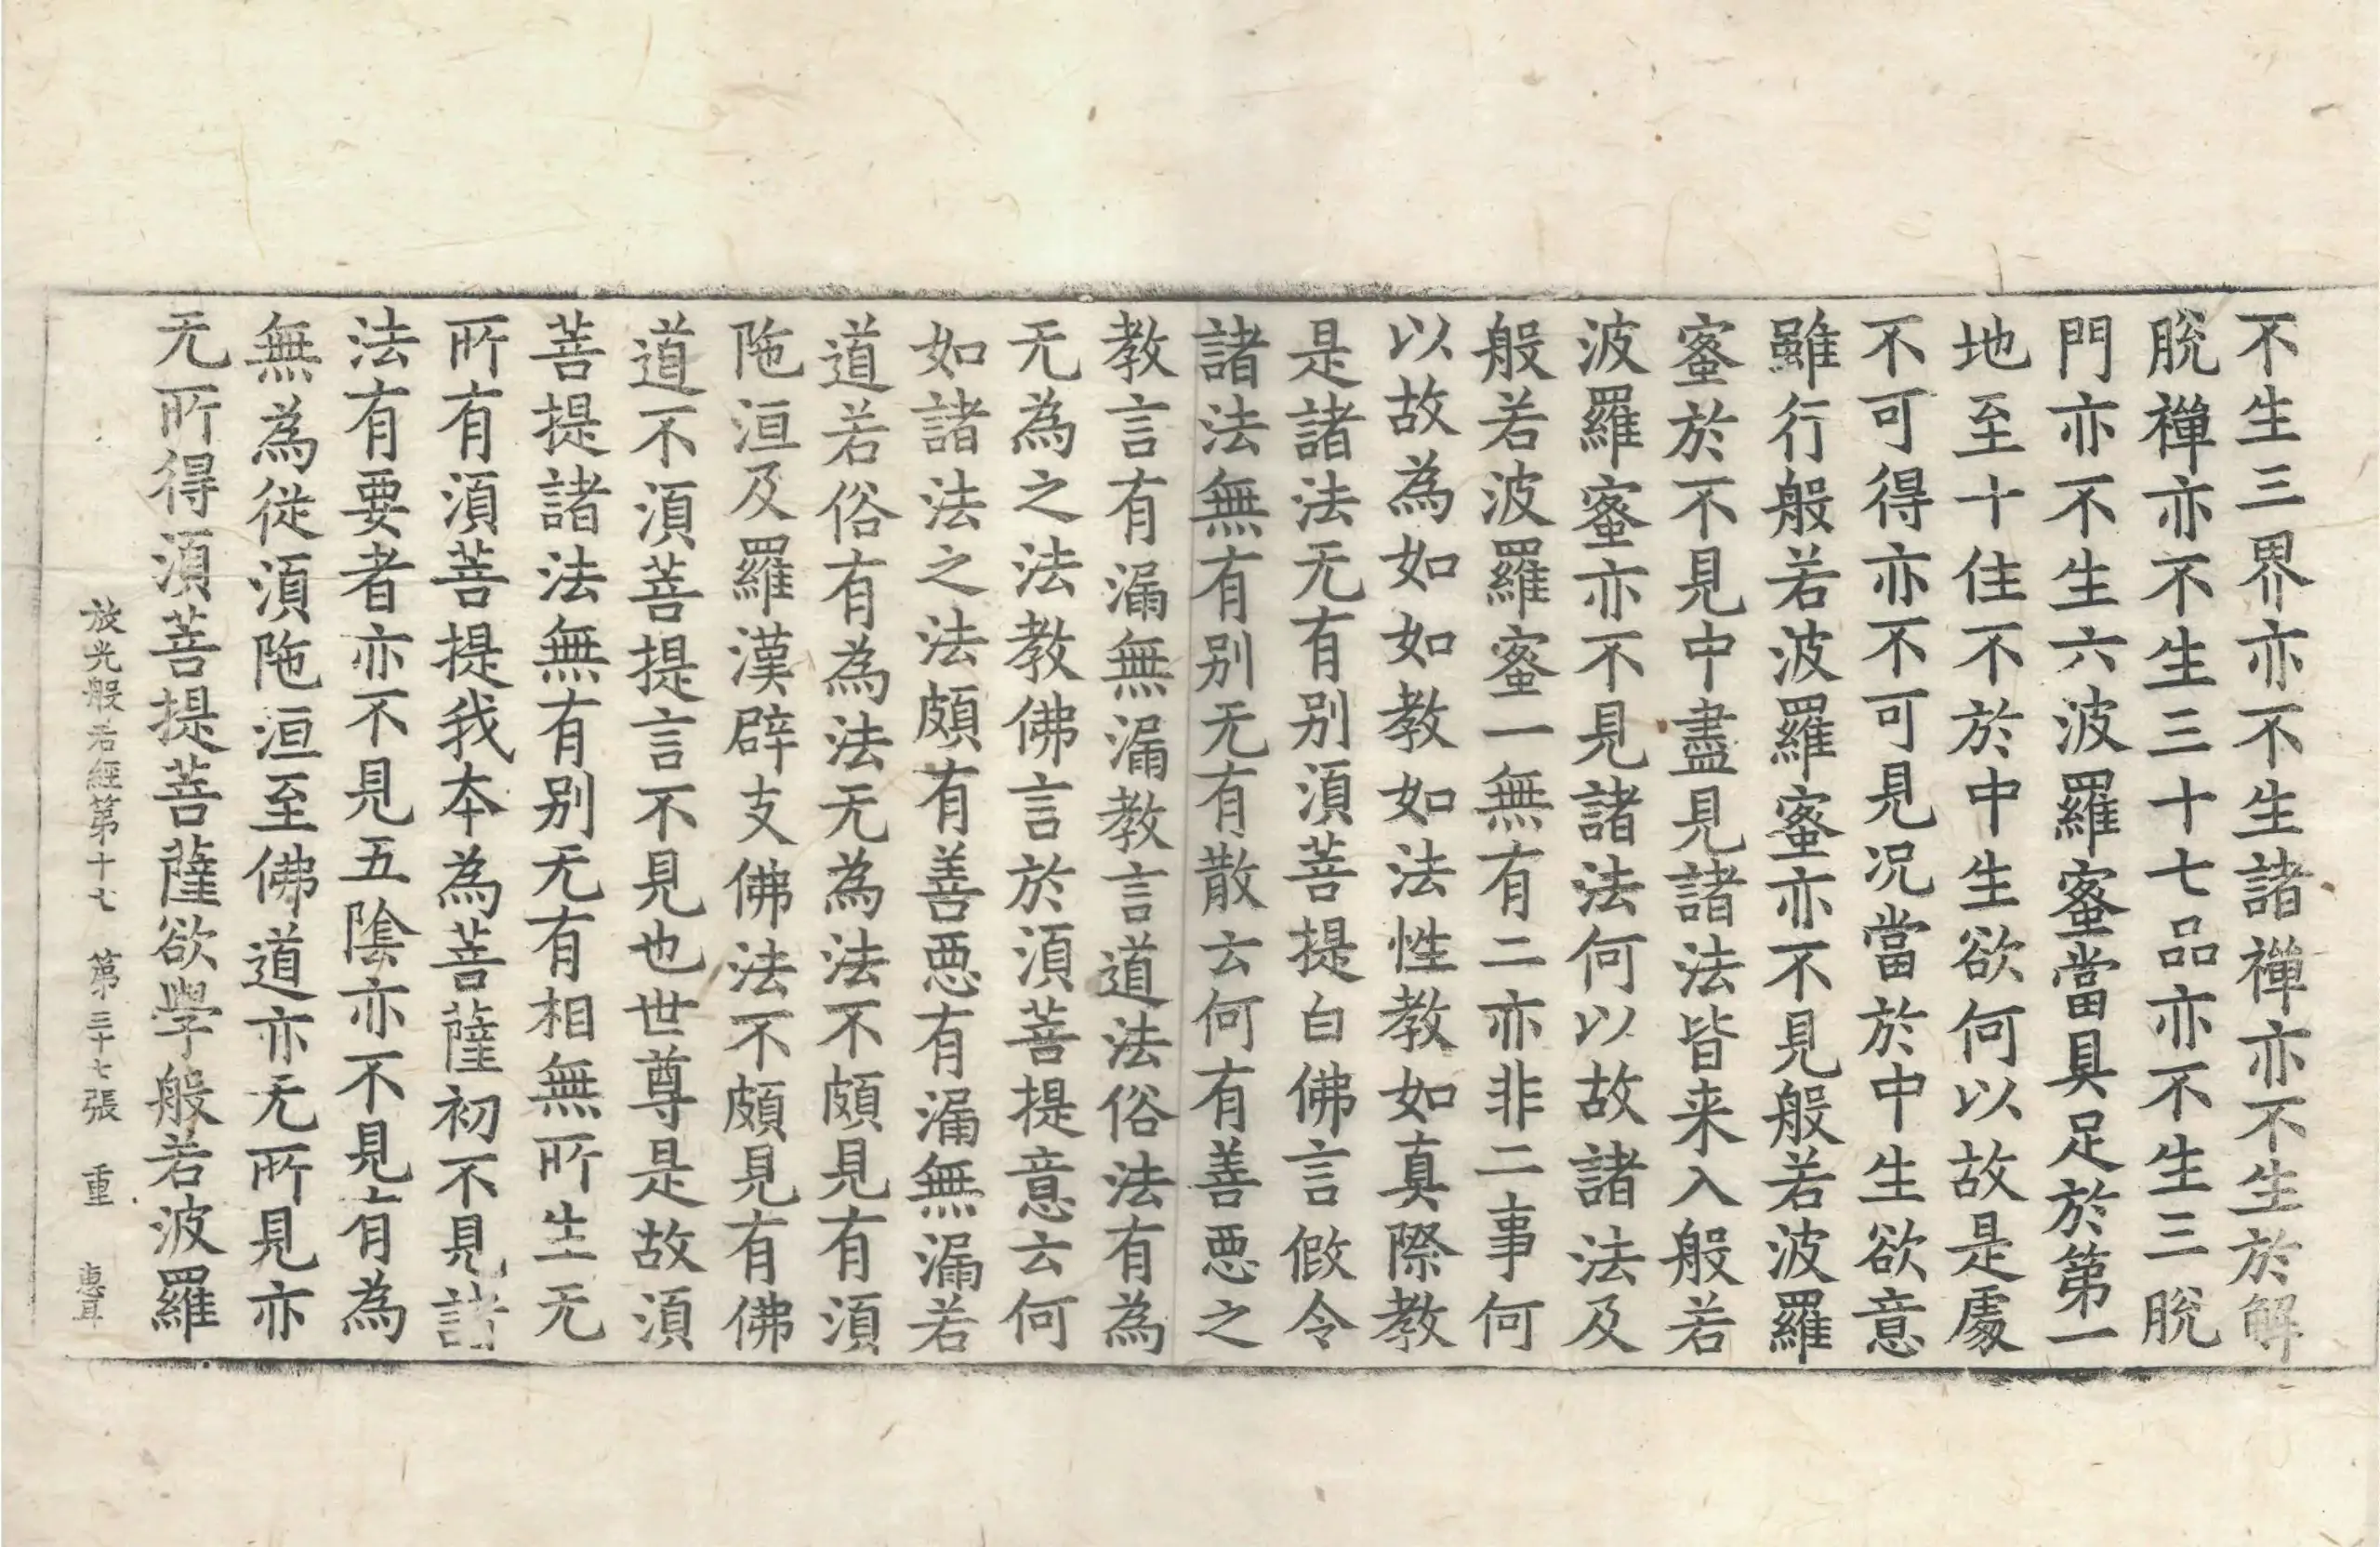 不生三界亦不生諸禪亦不生於解
脫禪亦不生三十七品亦不生三脫
門亦不生六波羅蜜當具足於第一
地至十住不於中生欲何以故是處
不可得亦不可見况當於中生欲意
雖行般若波羅蜜亦不見般若波羅
蜜於不見中盡見諸法皆来入般若
波羅蜜亦不見諸法何以故諸法及
般若波羅蜜一無有二亦非二事何
以故為如如教如法性教如真際教
是諸法无有别湏菩提白佛言假令
諸法無有别无有散云何有善惡之
教言有漏無漏教言道法俗法有為
无為之法教佛言於湏菩提意云何
如諸法之法頗有善惡有漏無漏若
道若俗有為法无為法不頗見有湏
陁洹及羅漢辟支佛法不頗見有佛
道不湏菩提言不見也世尊是故湏
菩提諸法無有别无有相無所生无
所有湏菩提我本為菩薩初不見諸
法有要者亦不見五陰亦不見有為
無為從湏陁洹至佛道亦无所見亦
无所得湏菩提菩薩欲學般若波羅
放光般若經第十七 第三十七張 重 惠耳